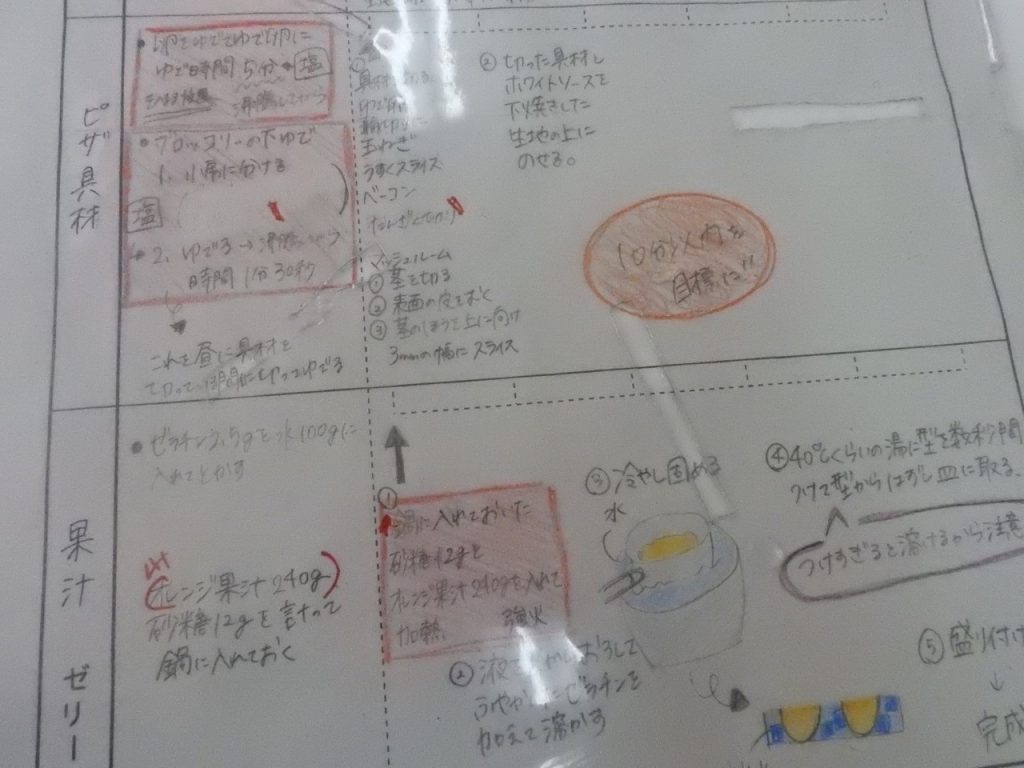 ピザ具材
ゆで時間 5分
塩
・ブロッコリーの下ゆで
1. 小房に分ける
塩
2. ゆでる→
時間 1分30秒
これを昼に具材を
①
玉ねぎ
うすくスライス
ベーコン
たんざく切り
マッシュルーム
①茎を切る
②表面の皮をむく
③茎のほうを上に向け
3mmの幅にスライス
②切った具材と
ホワイトソースを
下焼きした
生地の上に
のせる。
10分以内を
目標に!!
果汁ゼリー
・ゼラチン 2.5gを水100gに
入れてとかす
(オレンジ果汁240g)
砂糖12gを計って
鍋に入れておく
①
鍋に入れておいた
砂糖12gと
オレンジ果汁240gを入れて
加熱 強火
②火
ゼラチンを
加えて溶かす
③冷やし固める
水
④40℃くらいの湯に型を数秒間
つけて型からはずし皿に取る。
つけすぎると溶けるから注意
⑤盛り付け
↓
完成